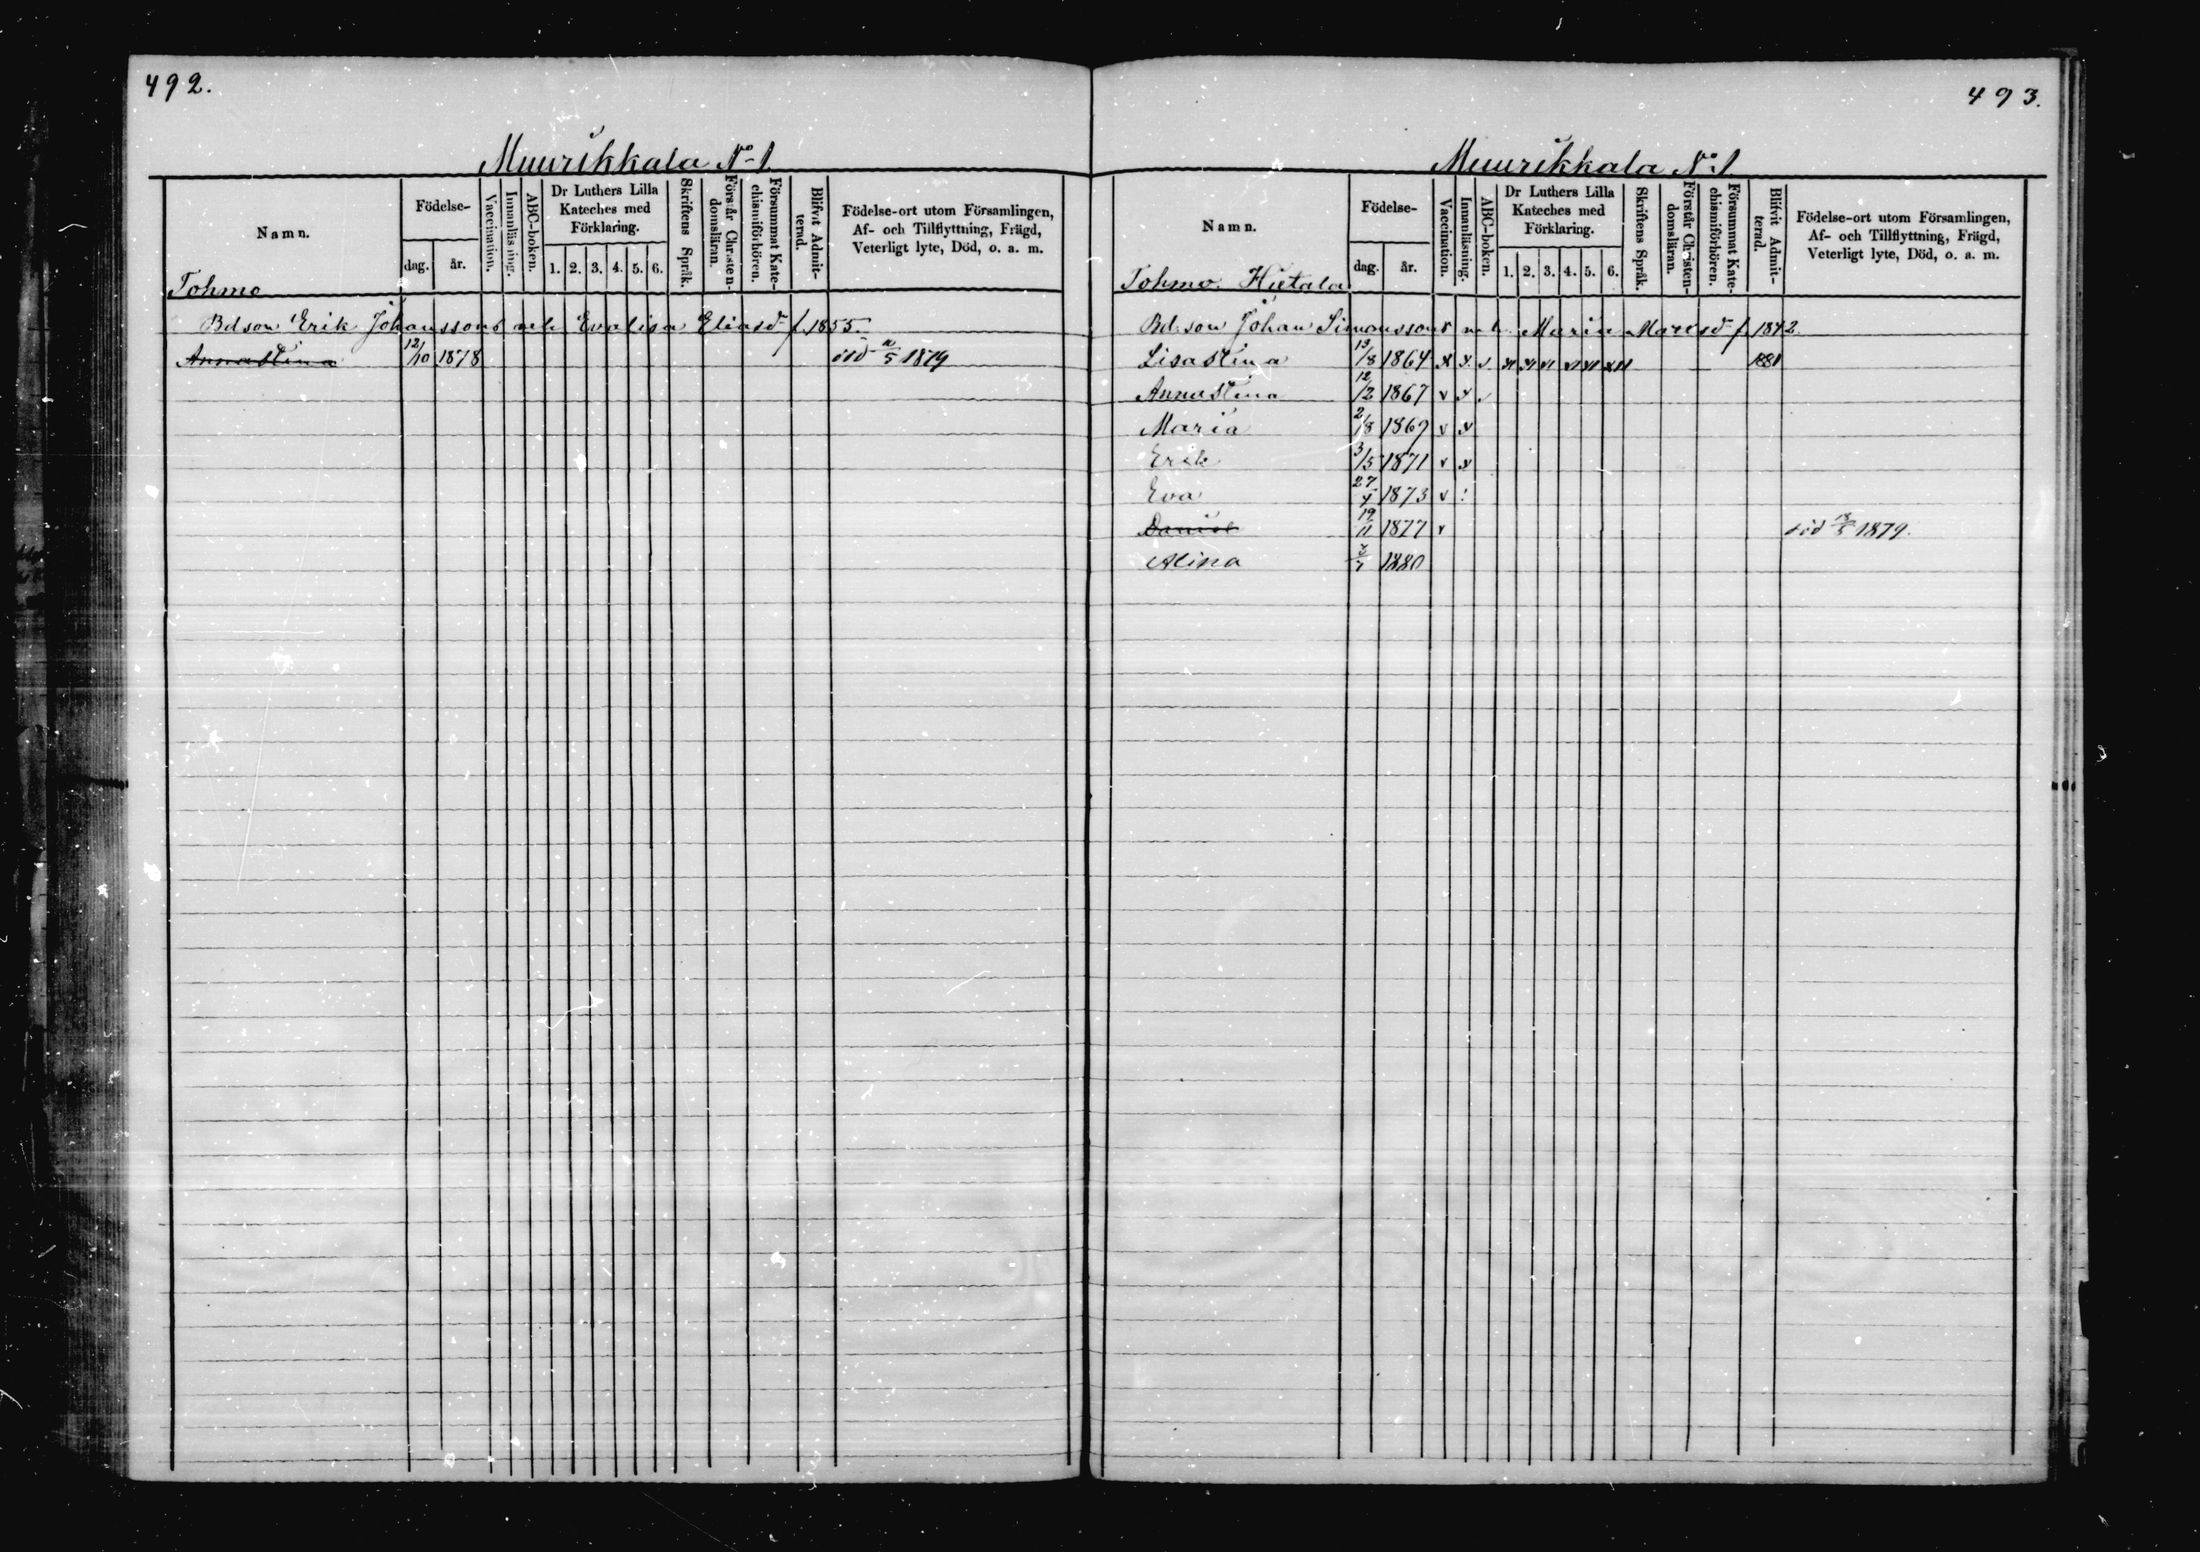 492.
Muurikkala No 1
Namn.
Födelse-
dag.
år.
Vaccination.
Innanläsning.
ABC-boken.
Dr Luthers Lilla
Kateches med
Förklaring.
1. 2. 3. 4. 5. 6.
Skriftens Språk.
Förstår Christen-
domsläran.
Försummat Kate-
chismiförhören.
Blifvit Admit-
terad.
Födelse-ort utom Församlingen,
Af- och Tillflyttning, Frägd,
Veterligt lyte, Död, o. a. m.
Tohmo
Bdson Erik Johanssons o. h. Evalisa Eliasd f. 1855.
Annastina 12/10 1878 död 11/5 1879
493.
Muurikkala No 1
Namn.
Födelse-
dag.
år.
Vaccination.
Innanläsning.
ABC-boken.
Dr Luthers Lilla
Kateches med
Förklaring.
1. 2. 3. 4. 5. 6.
Skriftens Språk.
Förstår Christen-
domsläran.
Försummat Kate-
chismiförhören.
Blifvit Admit-
terad.
Födelse-ort utom Församlingen,
Af- och Tillflyttning, Frägd,
Veterligt lyte, Död, o. a. m.
Tohmo Hietala
Bd: son Johan Simonssons o. h. Maria f. 1842
Lisastina 13/8 1864 1881
Annastina 12/2 1867
Maria 2/8 1869
Erik 3/5 1871
Eva 27/4 1873
Daniel 19/11 1877 död 18/5 1879.
Alina 1880